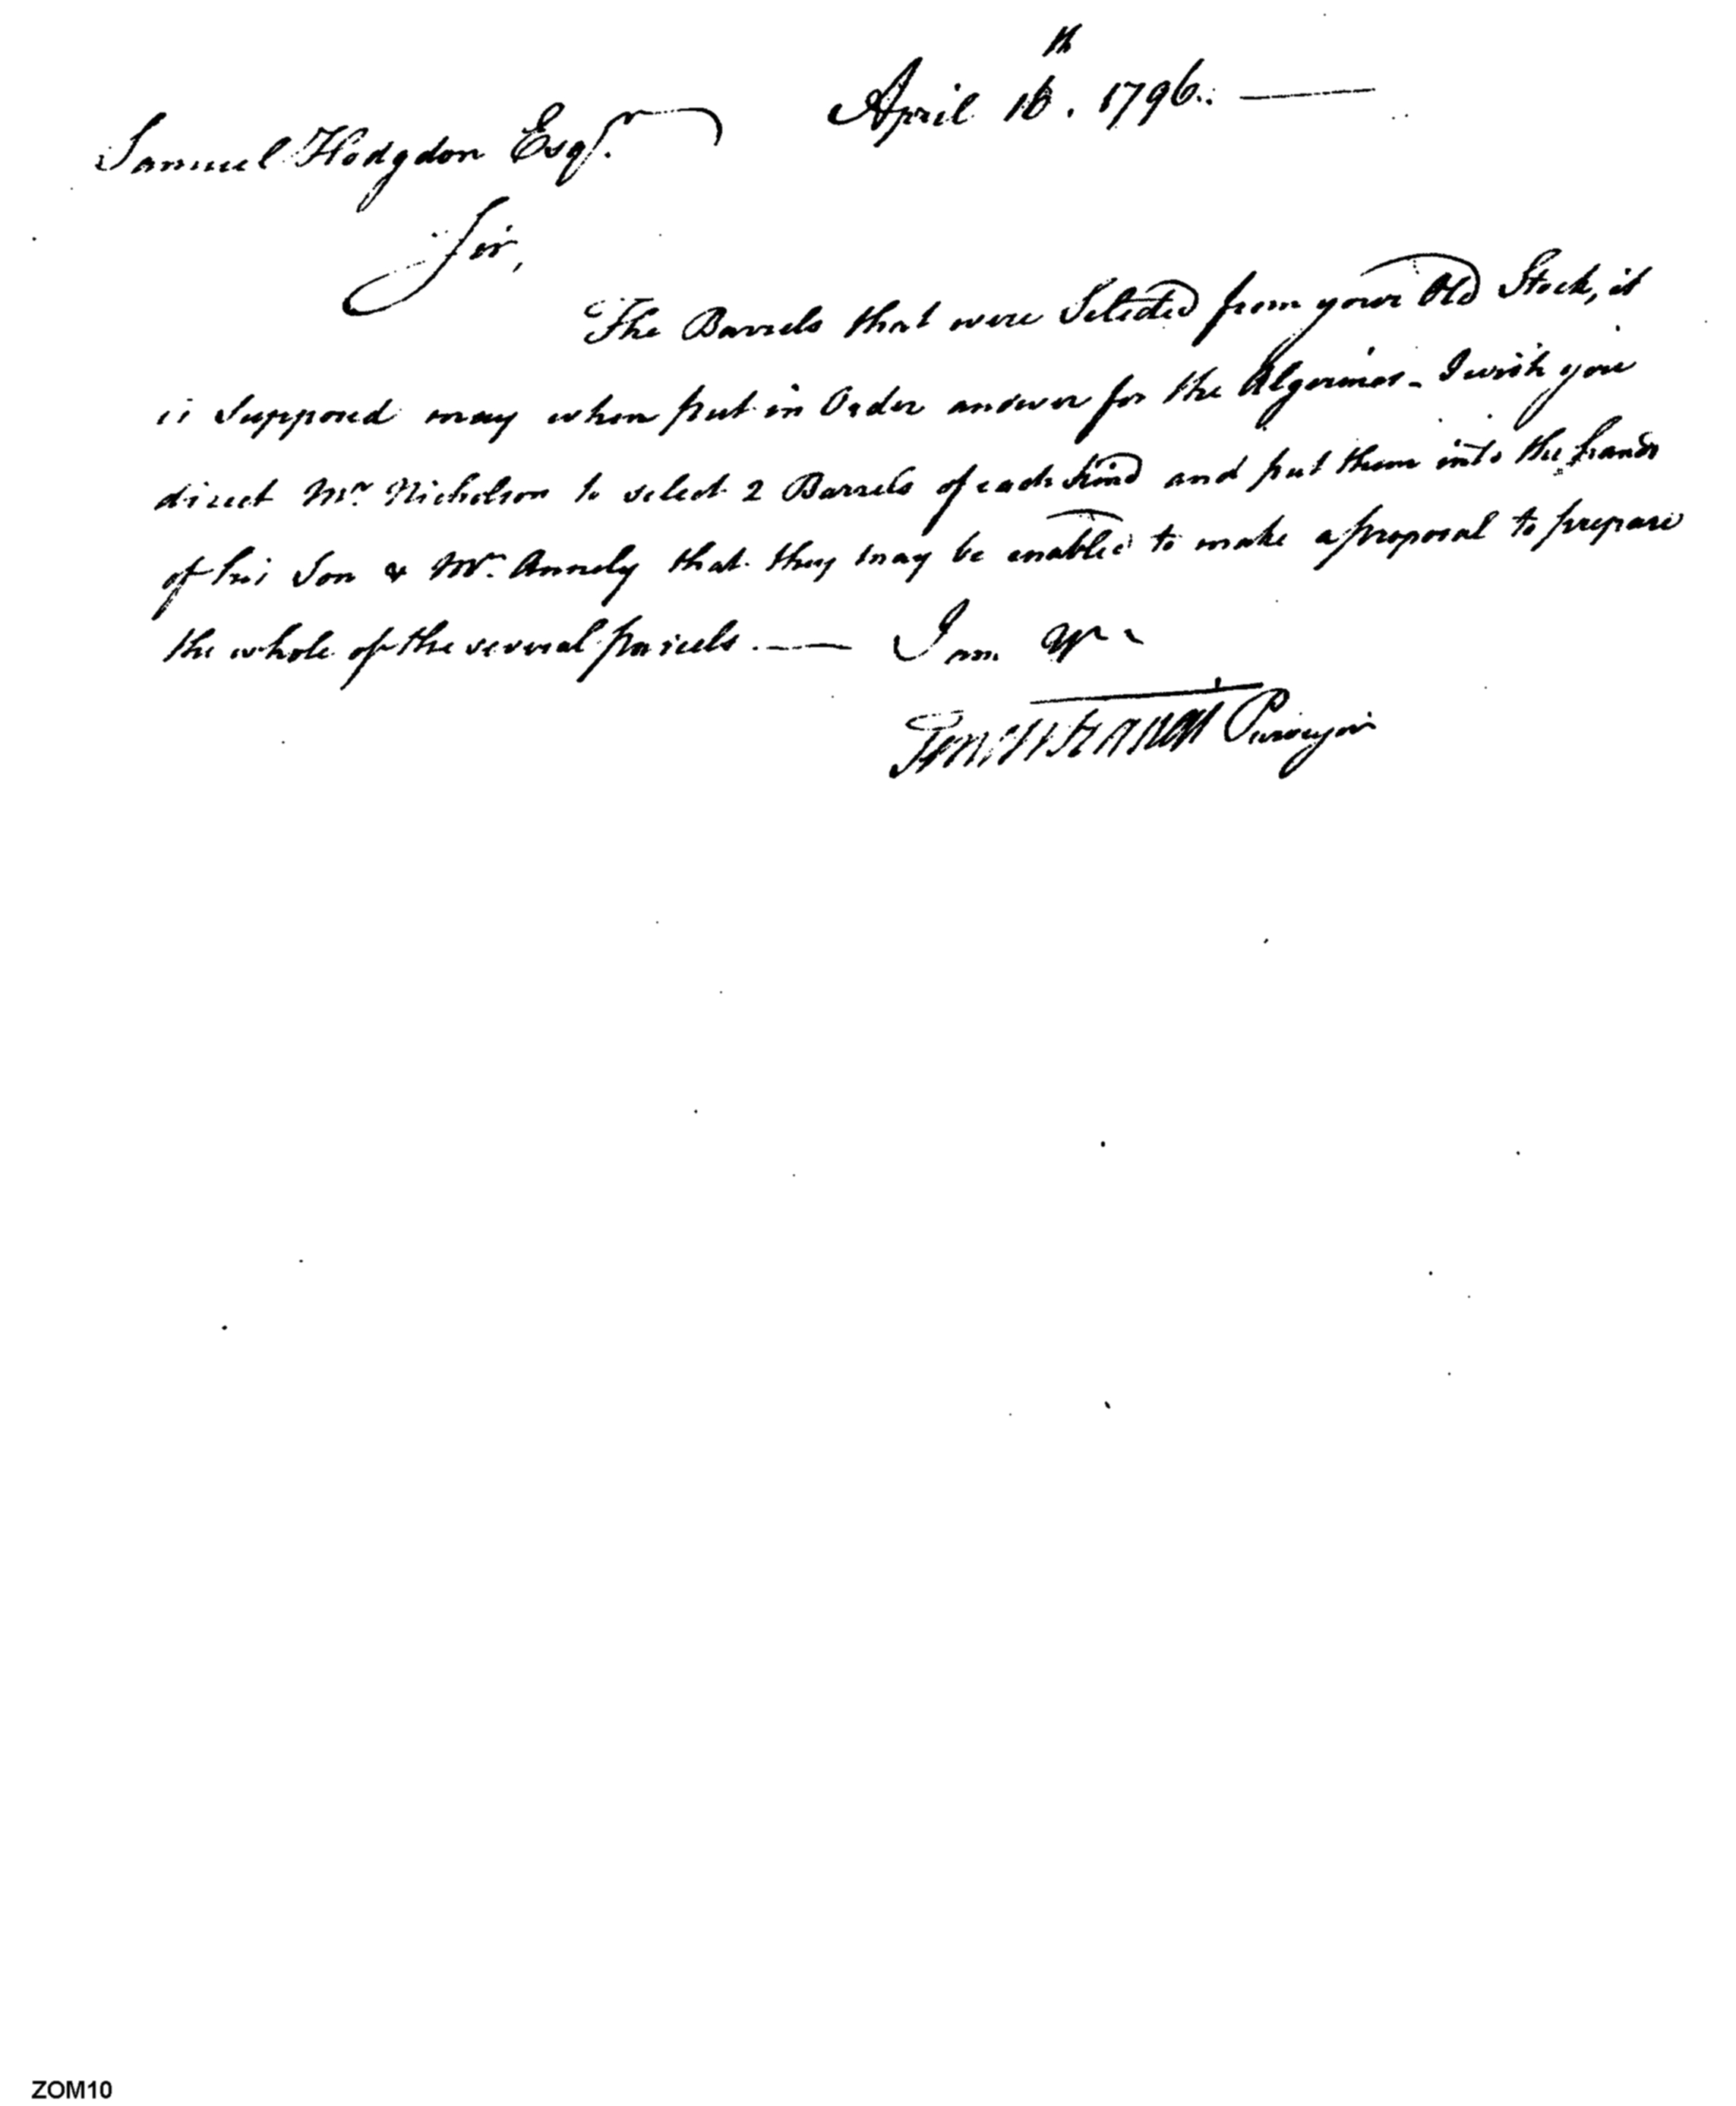 April 16th. 1796.
Samuel Hodgdon Esqr.
Sir,
The Barrels that were Selected from your Old Stock, it
is Supposed may when put in Order answer for the Algerines - I wish you
direct Mr. Nicholson to select 2 Barrels of each kind and put them into the hands
of his Son & Mr. Annely that they may be enabled to make a proposal to prepare
the whole of the several parcels — I am &c
Purveyor
ZOM10